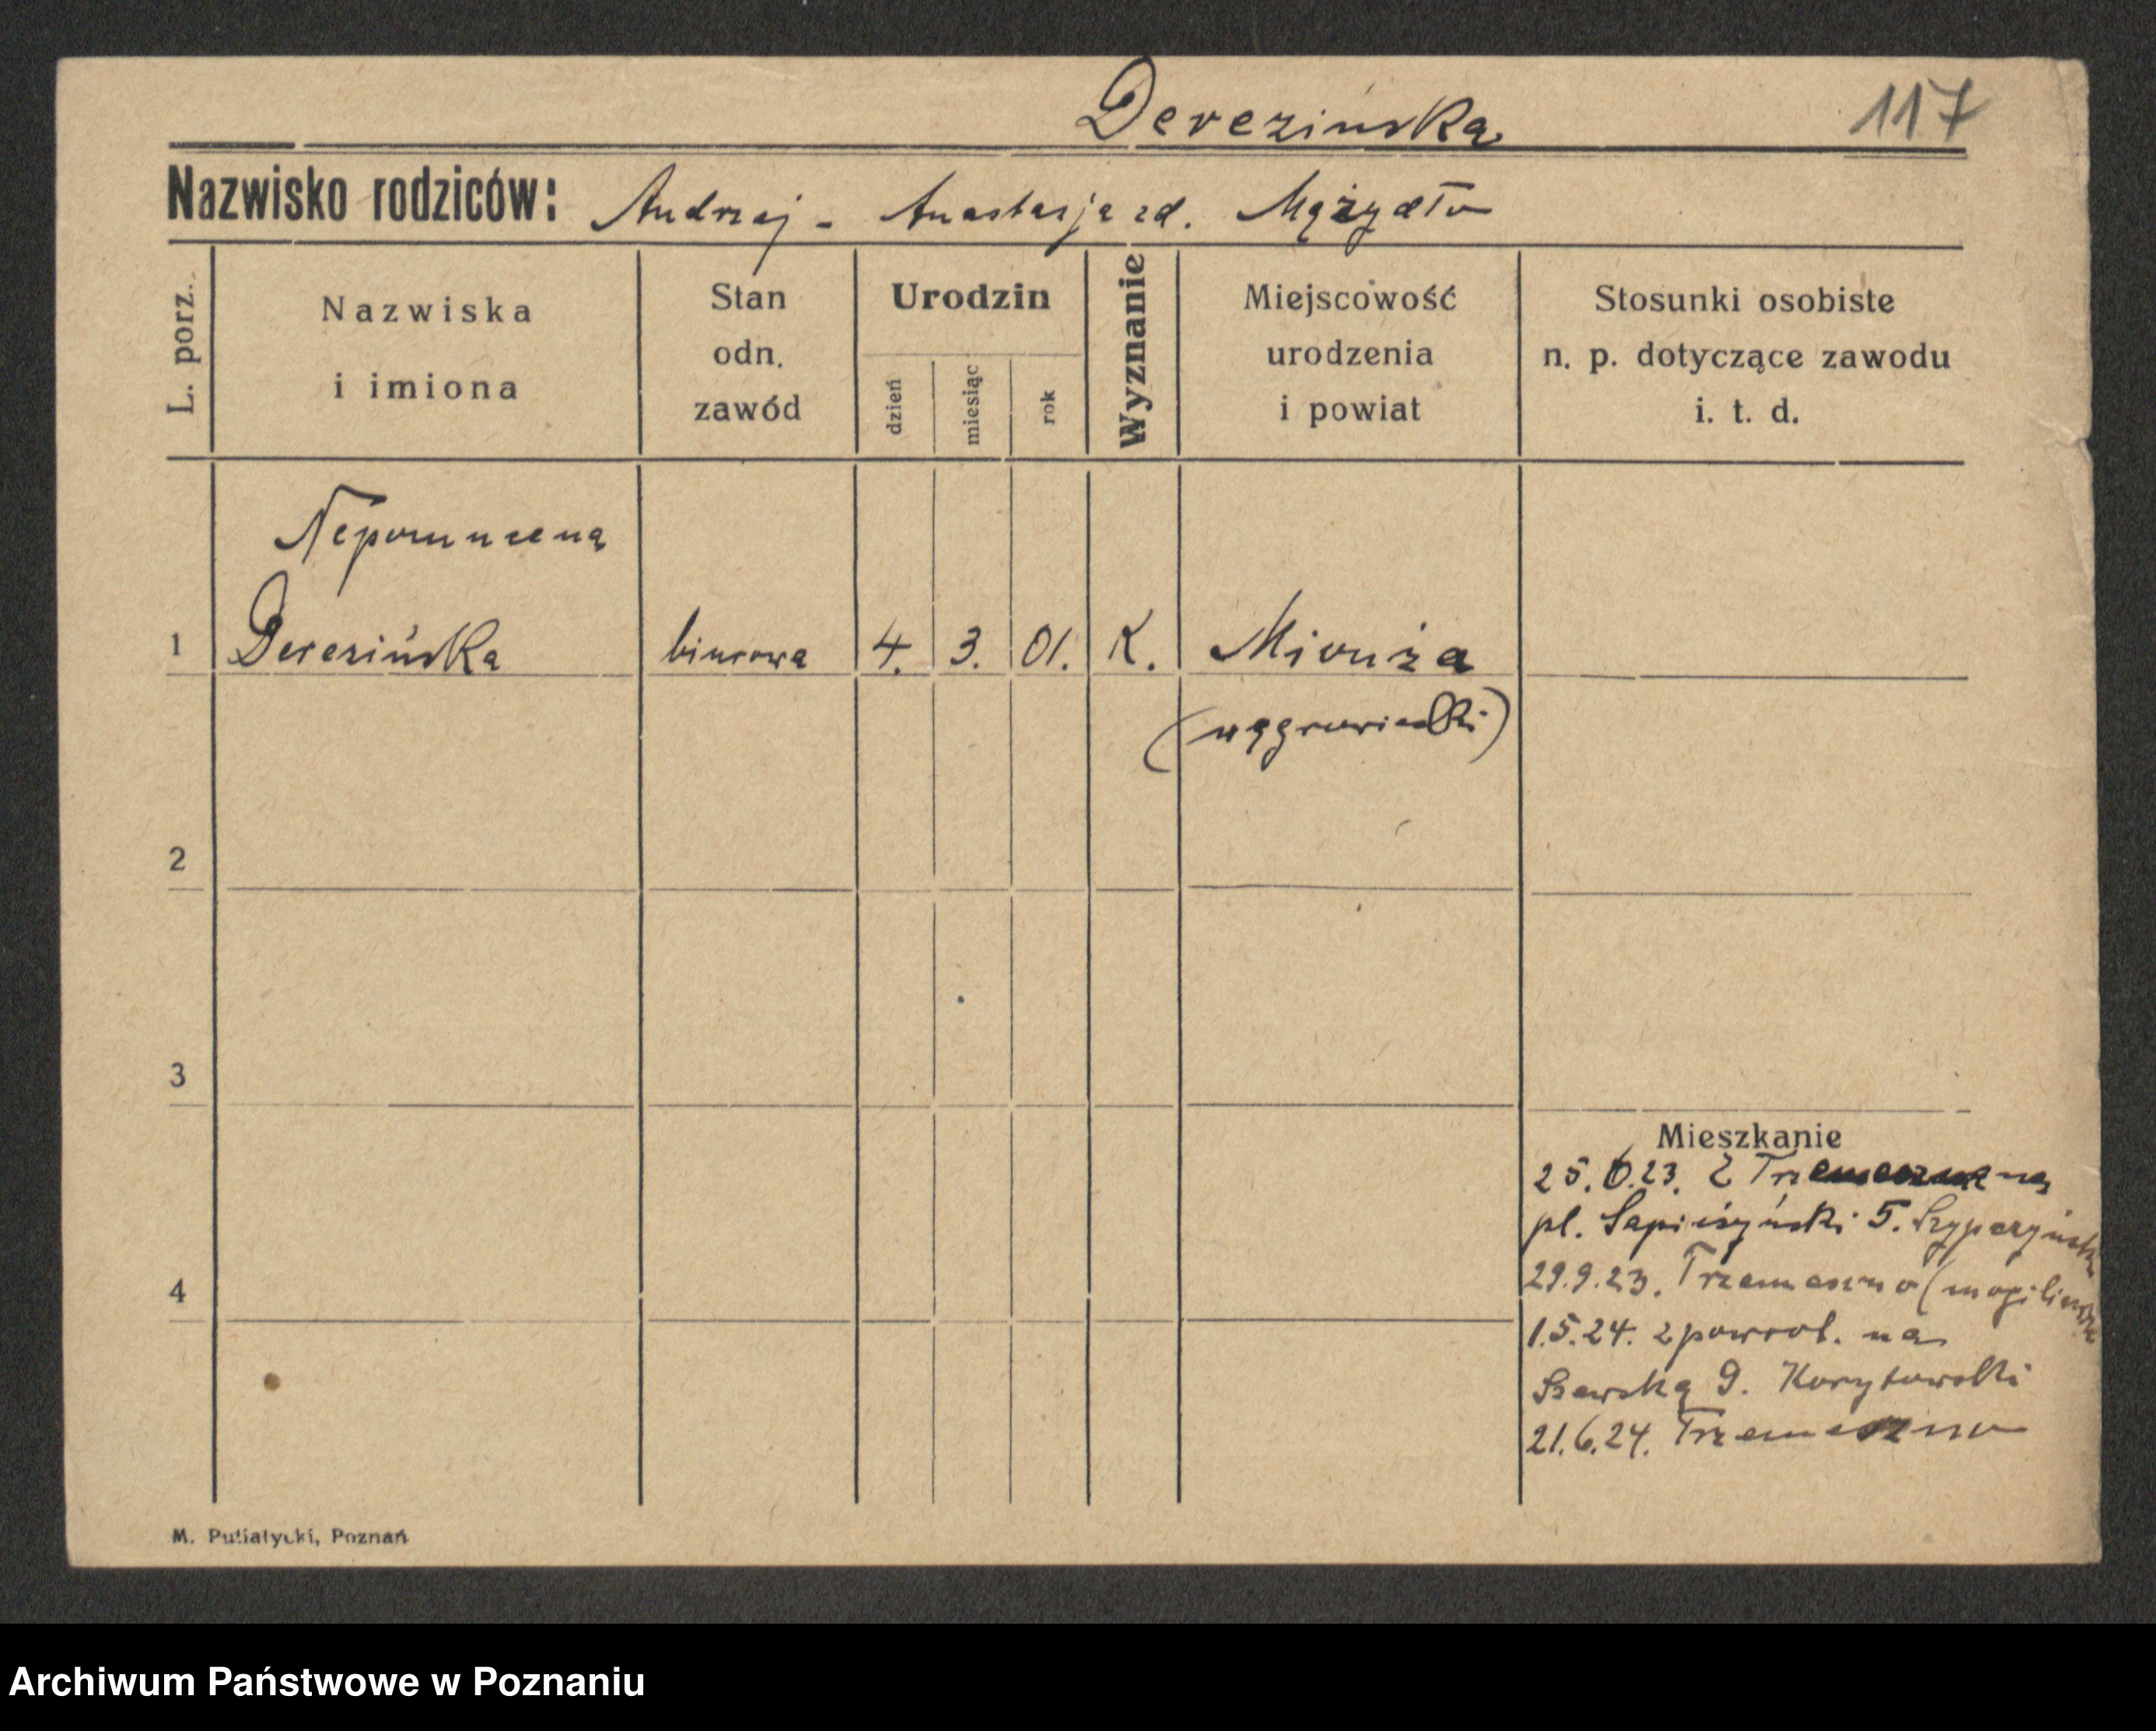 Derezińska
117
Nazwisko rodziców: Andrzej - Anastazja zd. Mężydło
L. porz.
Nazwiska
i imiona
Stan
odn.
zawód
Urodzin
dzień
miesiąc
rok
Wyznanie
Miejscowość
urodzenia
i powiat
Stosunki osobiste
n. p. dotyczące zawodu
i. t. d.
Nepomucena
1 Derezińska biurowa 4. 3. 01. K. Miruża
(wągrowiecki)
2
3
Mieszkanie
25.6.23. Z Trzemeszna na
pl. Sapieżyński 5.
29.9.23. Trzemeszno
4
1.5.24. z powrot. na
Szewską 9. Korytowski
21.6.24. Trzemeszno
M. Putiatycki, Poznań
Archiwum Państwowe w Poznaniu